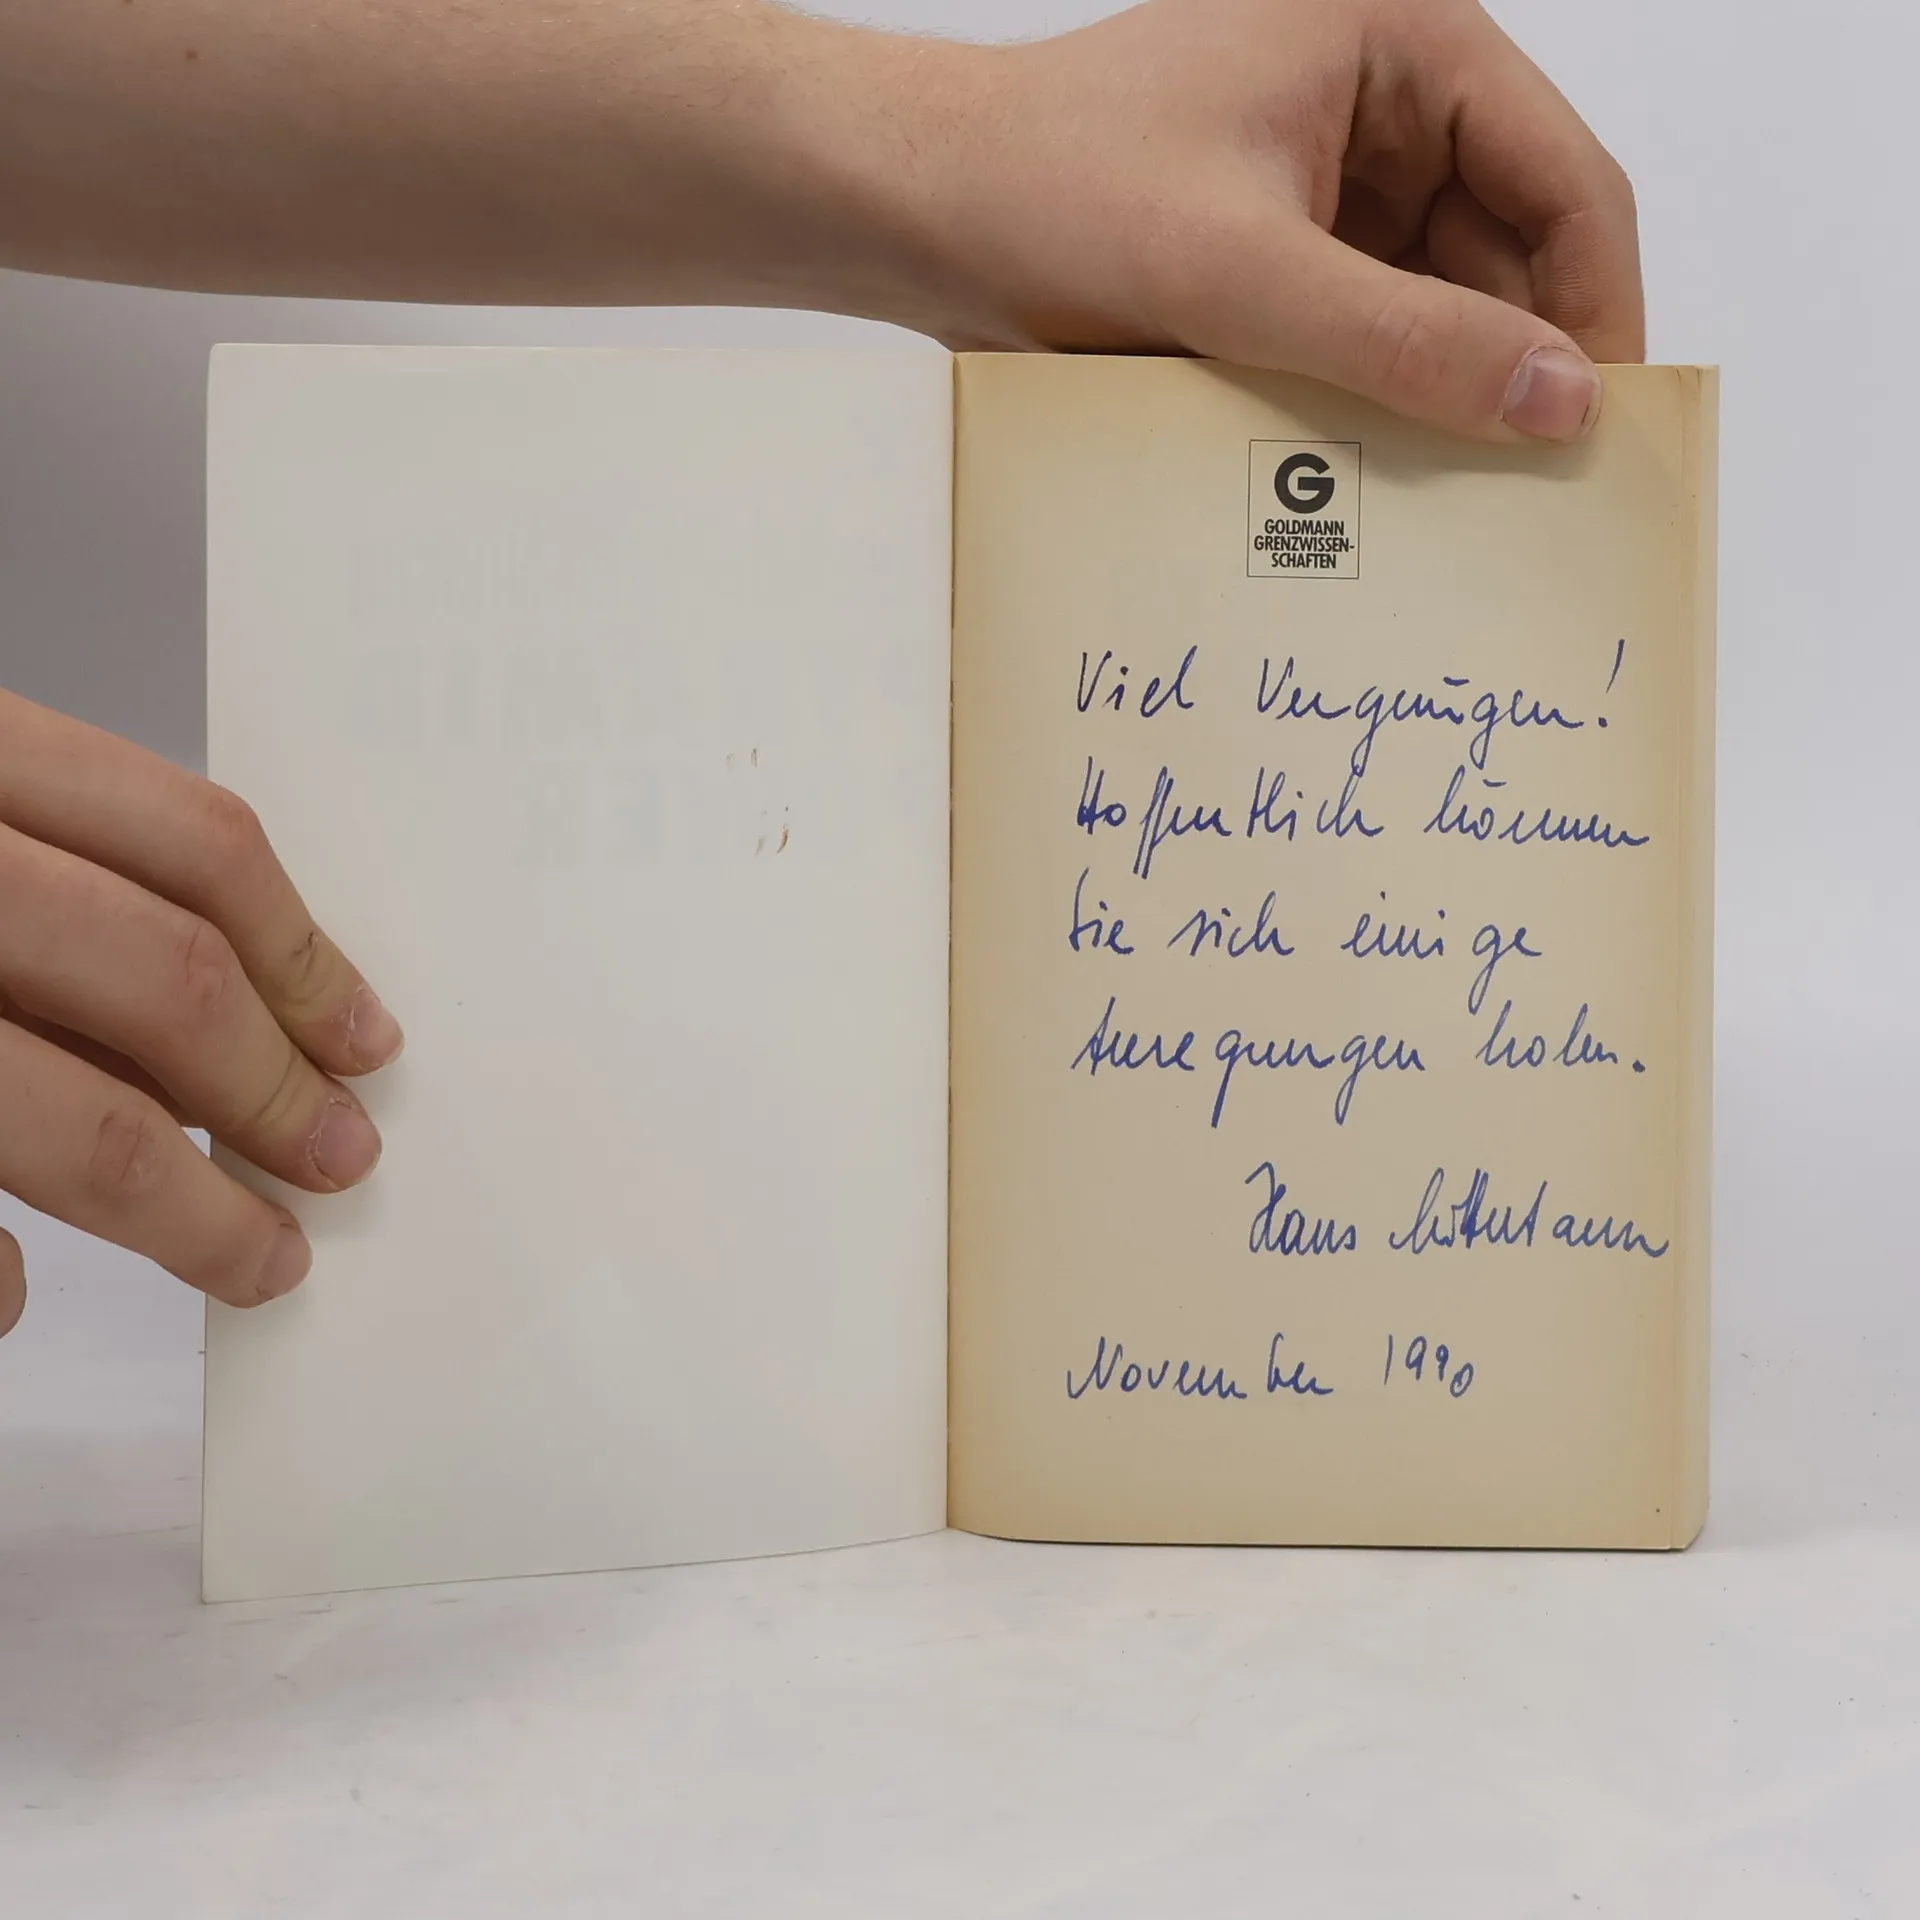 G
GOLDMANN
GRENZWISSEN-
SCHAFTEN
Viel Vergnügen!
Hoffentlich können
Sie sich einige
Anregungen holen.
Hans
November 1990